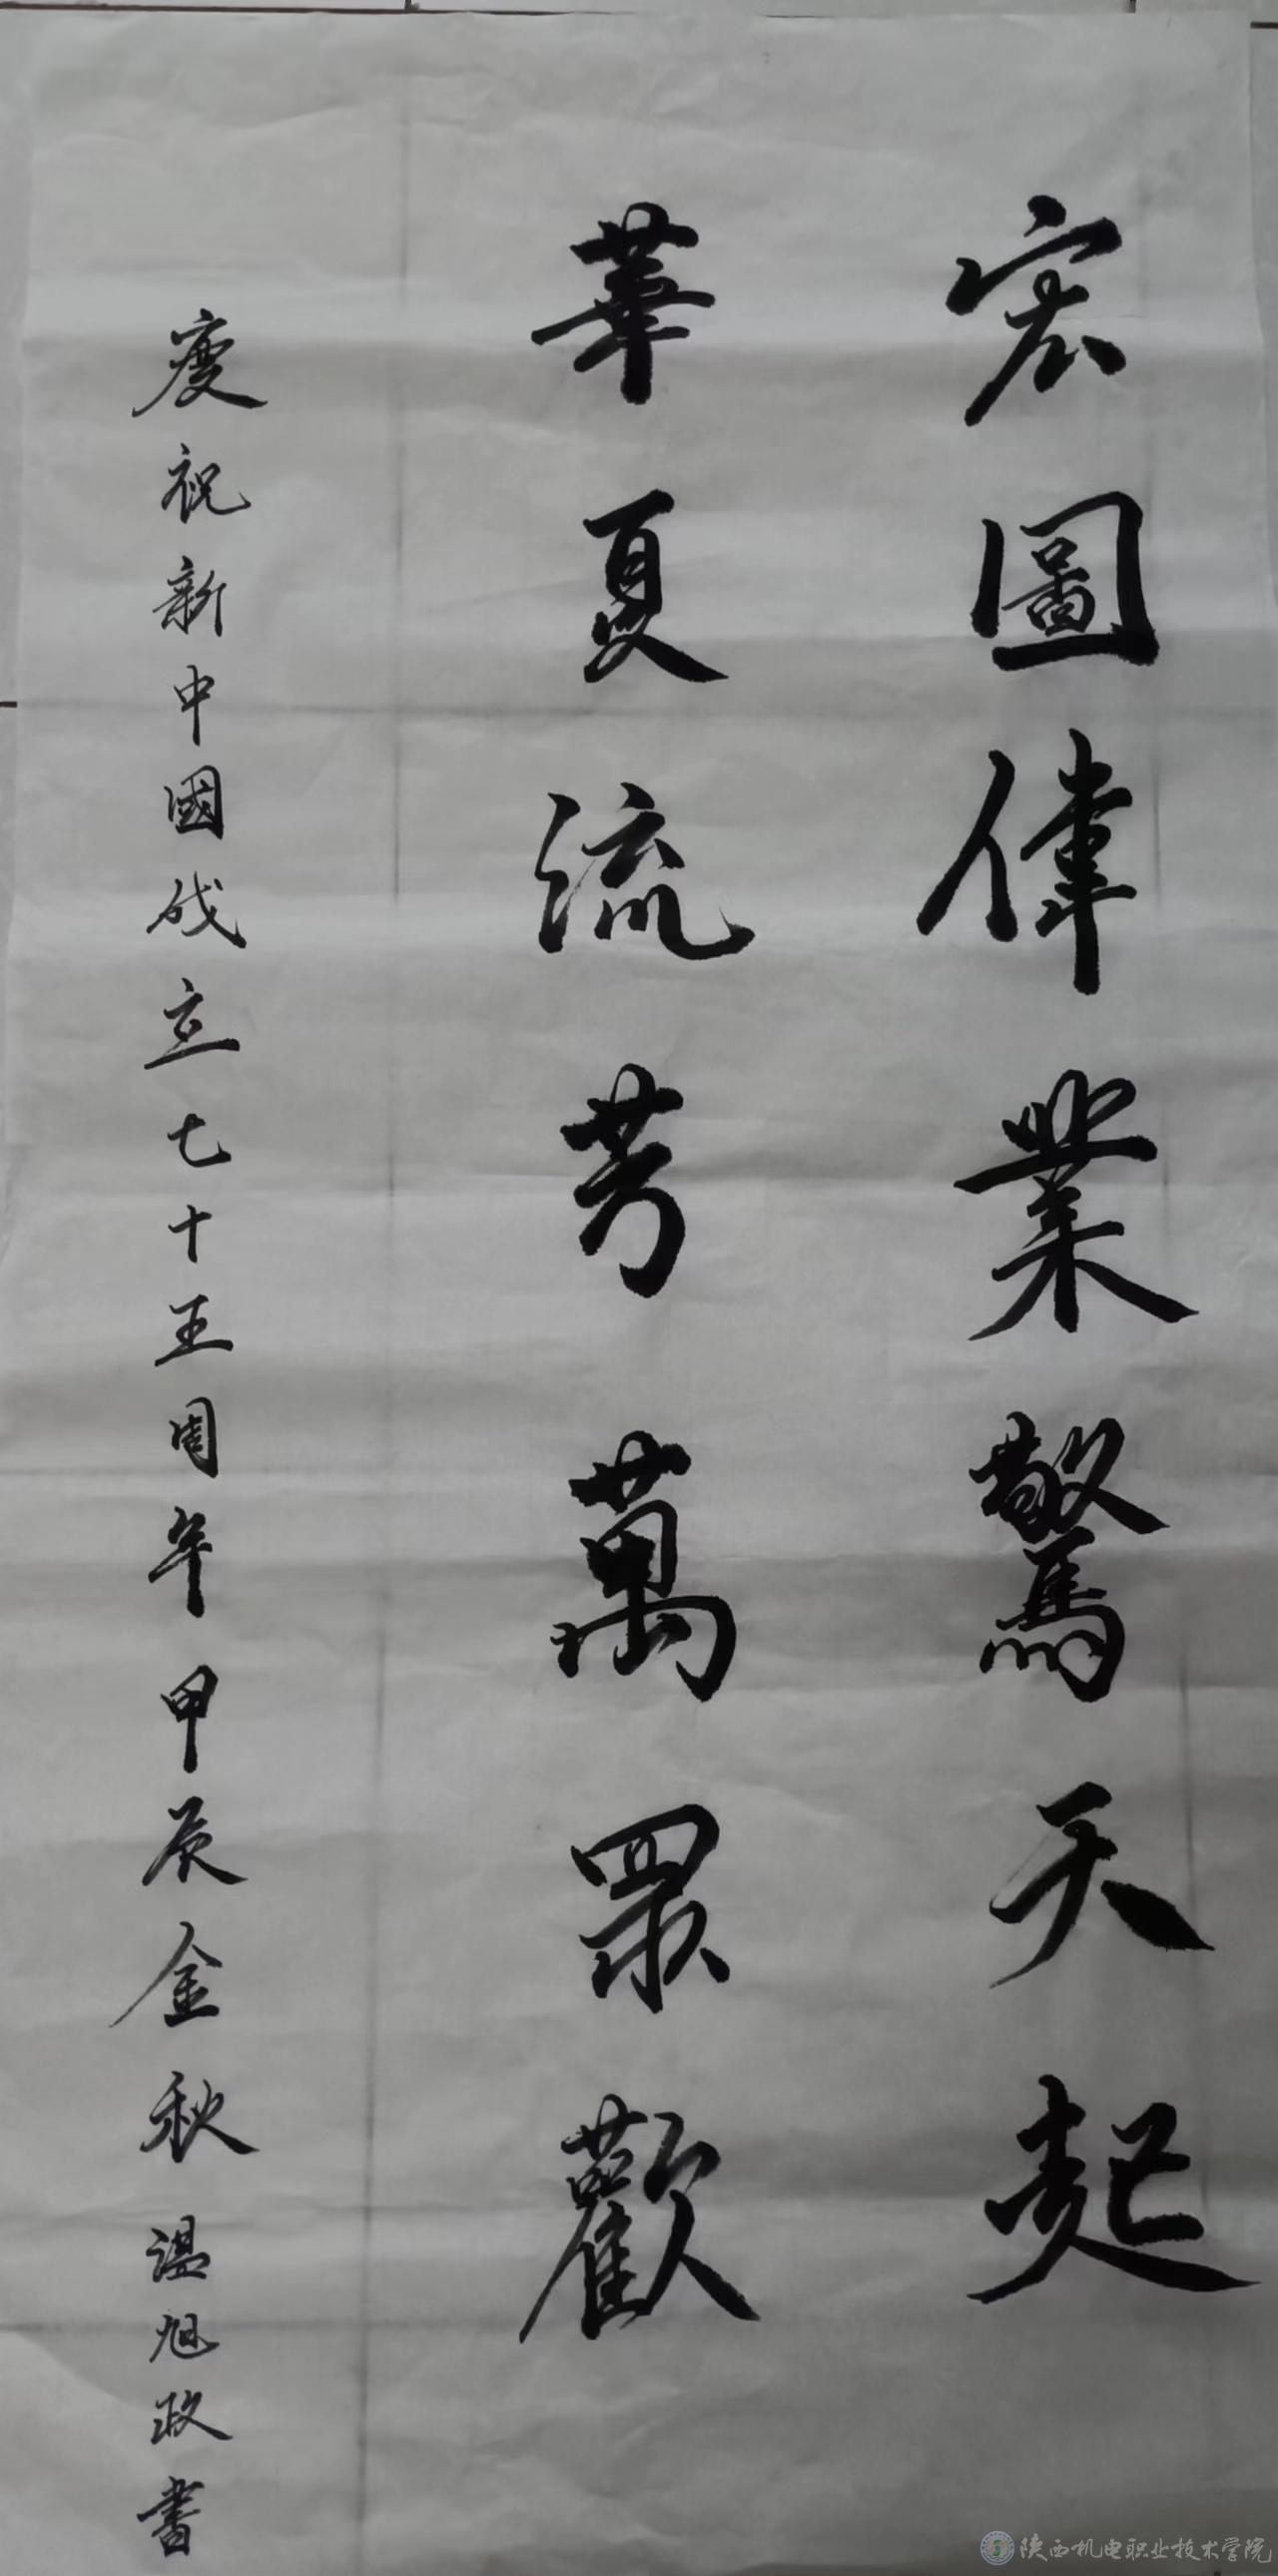 宏圖偉業驚天起
華夏流芳萬眾歡
慶祝新中國成立七十五周年甲辰金秋溫旭政書
陕西机电职业技术学院